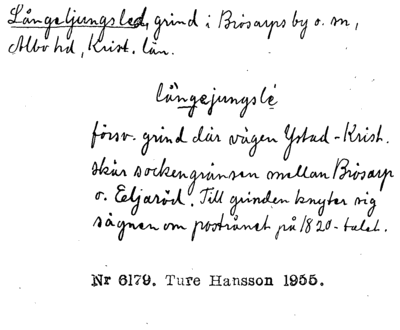 Långeljungsled, grind i Brösarps by o. sn,
Albo hd, Krist. län.
långejungslé
försv. grind där vägen Ystad-Krist.
skär sockengränsen mellan Brösarp
o. Eljaröd. Till grinden knyter sig
sägnen om postrånet på 1820-talet.
Nr 6179. Ture Hansson 1955.